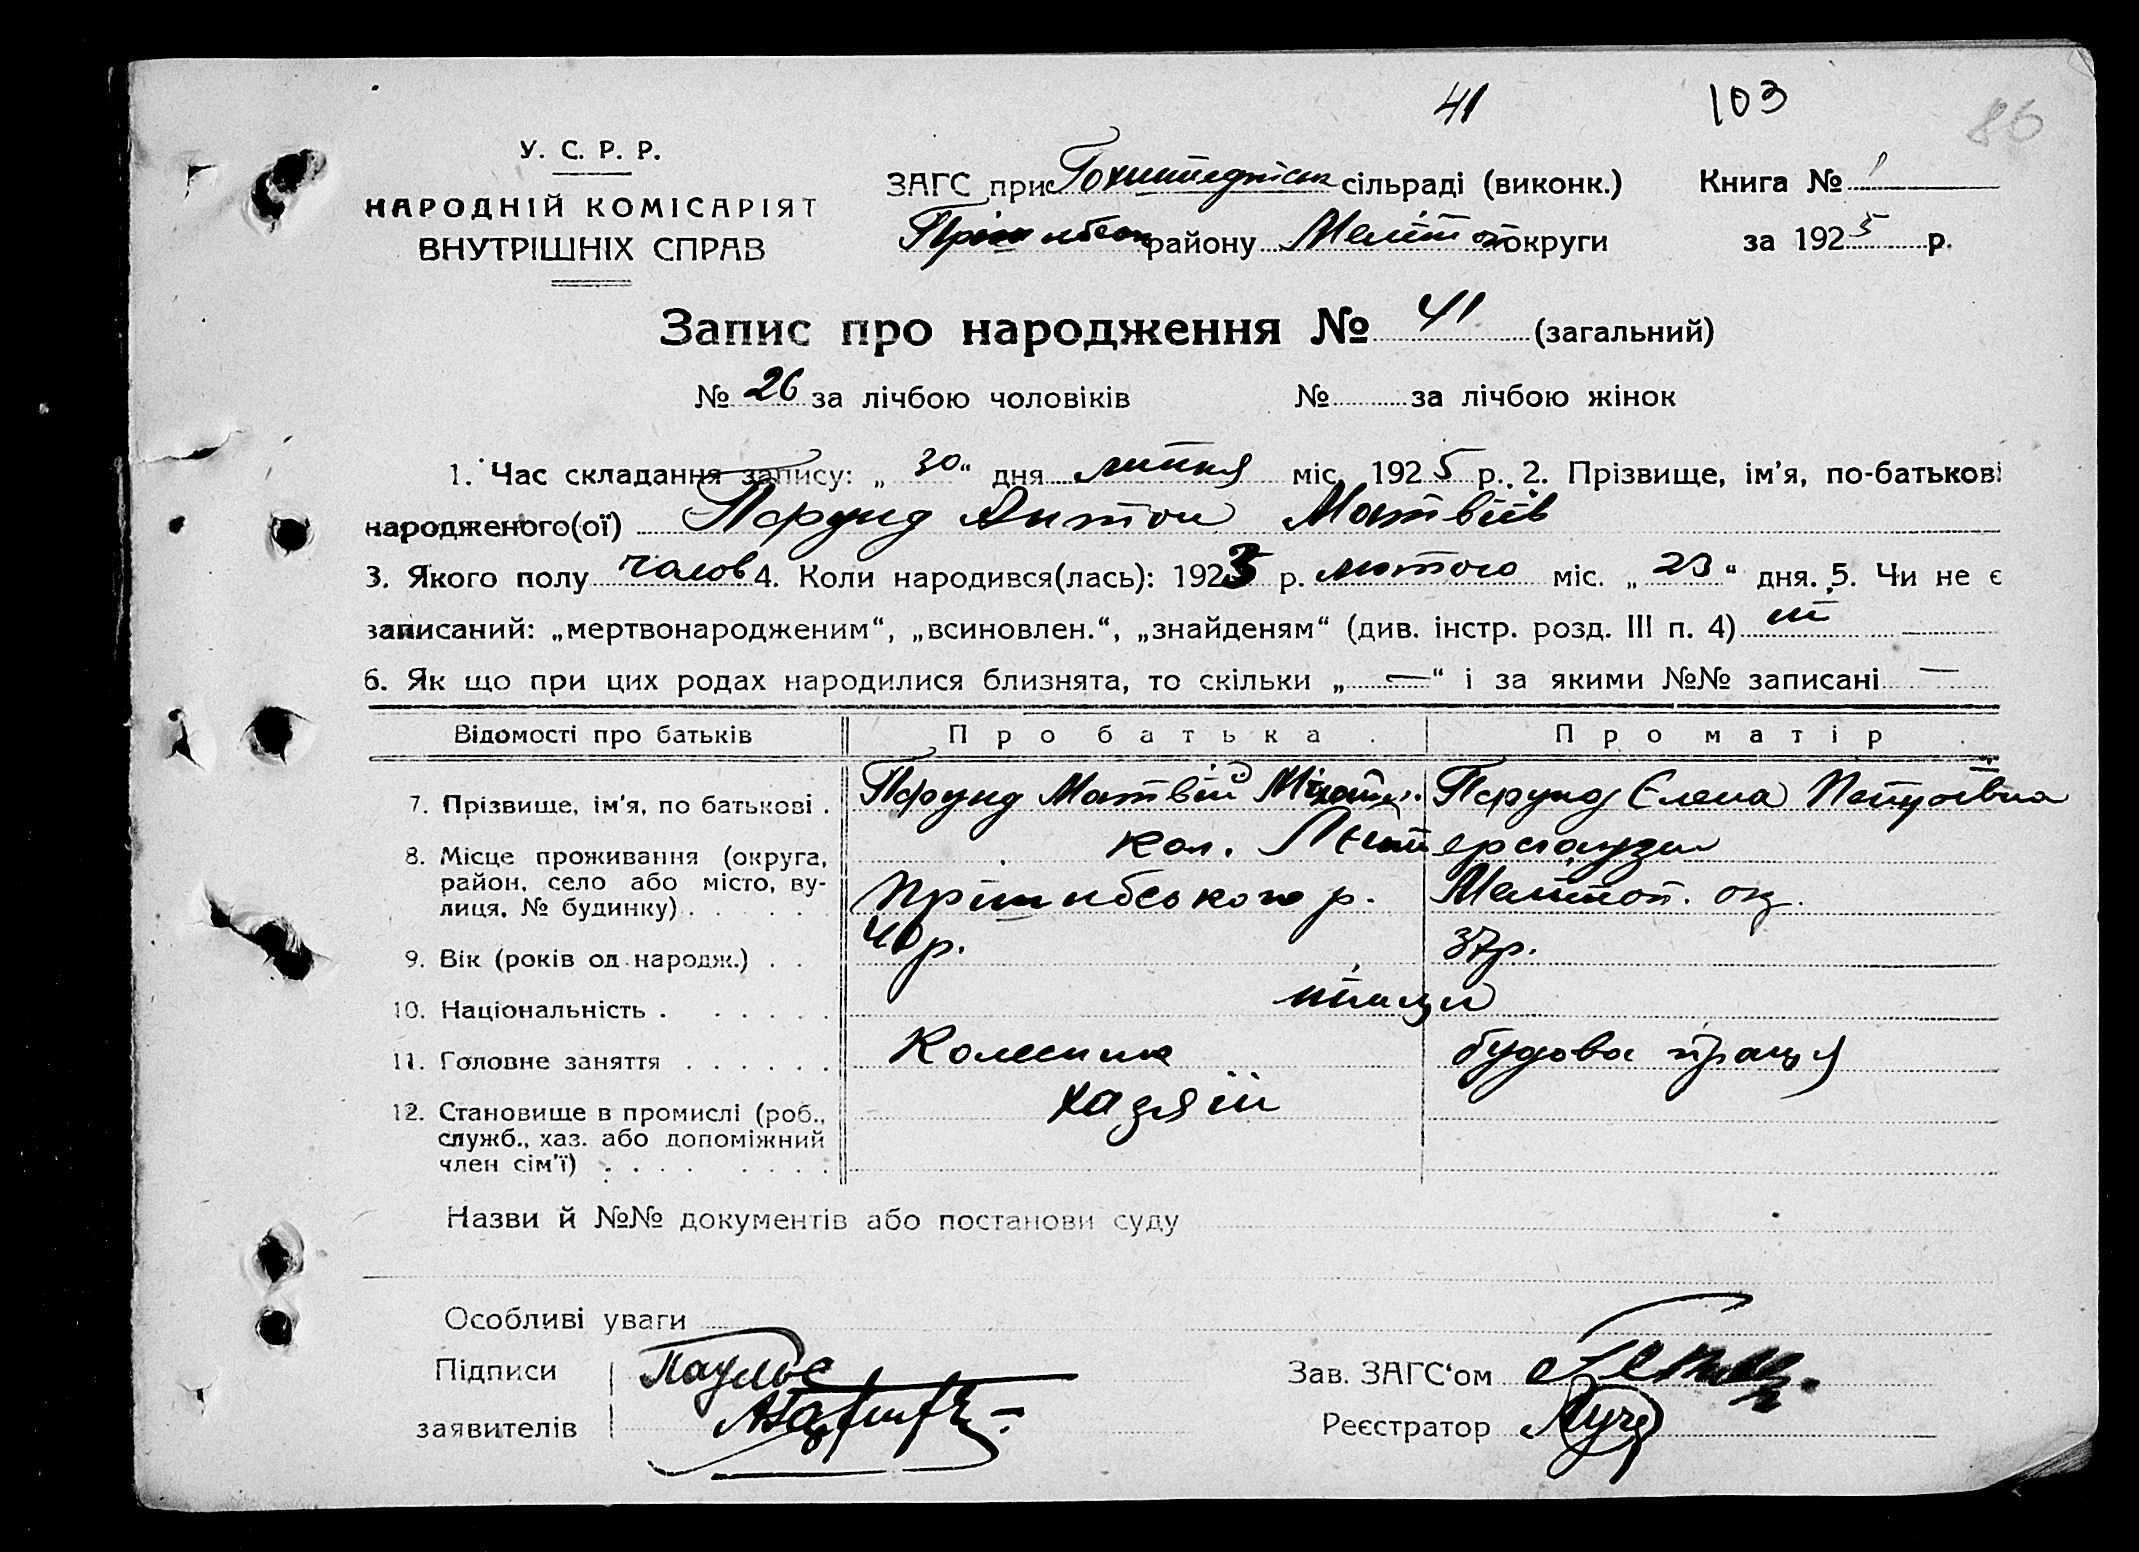 41 103 86
У. С. Р. Р.
НАРОДНІЙ КОМІСАРІЯТ
ВНУТРІШНІХ СПРАВ
ЗАГС при сільраді (виконк.) Книга № 1
району Меліто округи за 1925 р.
Запис про народження № 41 (загальний)
№ 26 за лічбою чоловіків № за лічбою жінок
1. Час складання запису: „30“ дня липня міс. 1925 р. 2. Прізвище, ім'я, по-батькові
народженого(ої) Пфунд Антон Матвіїв
3. Якого полу чолов 4. Коли народився(лась): 1925 р. лютого міс. „23“ дня. 5. Чи не є
записаний: „мертвонародженим“, „всиновлен.“, „знайденям“ (див. інстр. розд. III п. 4) ні
6. Як що при цих родах народилися близнята, то скільки „—“ і за якими №№ записані —
Відомості про батьків Про батька Про матір
7. Прізвище, ім'я, по батькові . Пфунд Матвій Пфунд Єлена Петрівна
8. Місце проживання (округа, кол.
район, село або місто, ву- Прішибського р. Мелітоп. ок.
лиця, № будинку)
9. Вік (років од народж.) . . 40 р. 37 р.
10. Національність . . . . . . німци
11. Головне заняття . . . . . . Колесник будова праця
12. Становище в промислі (роб., хазяїн
служб., хаз. або допоміжний
член сім'ї)
Назви й №№ документів або постанови суду
Особливі уваги
Підписи Зав. ЗАГС'ом
заявителів Реєстратор